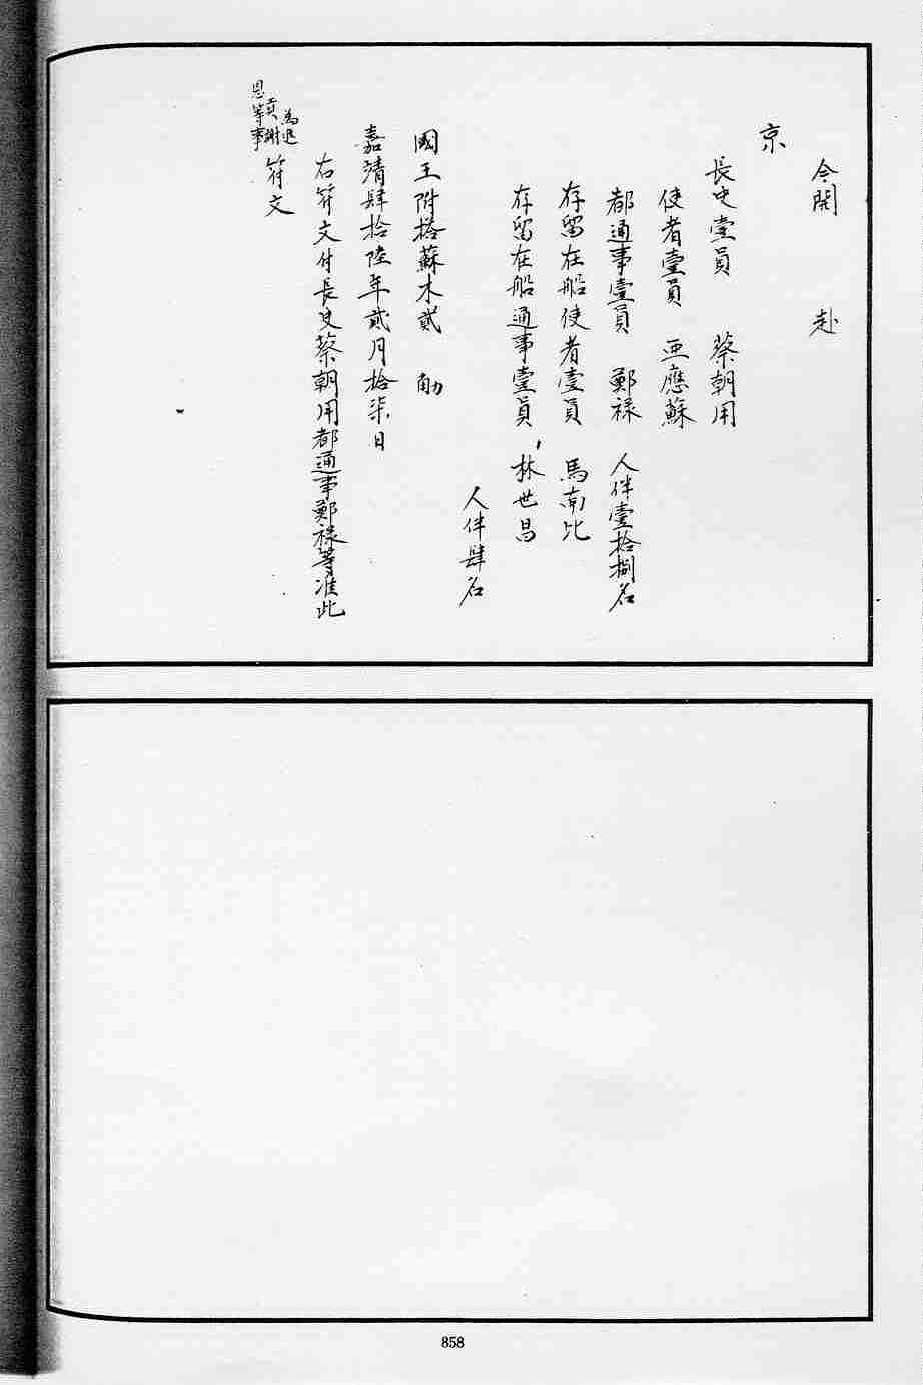 今開　赴
京
長史壹員　蔡朝用
使者壹員　亞應蘇
都通事壹員　鄭祿　人伴壹拾捌名
存留在船使者壹員　馬南比
存留在船通事壹員　林世昌
人伴肆名
國王附搭蘇木貳　觔
嘉清肆拾陸年貳月拾柒日
右符文付長史蔡朝用都通事鄭祿等准此
為進
貢謝
恩等事
符文
858